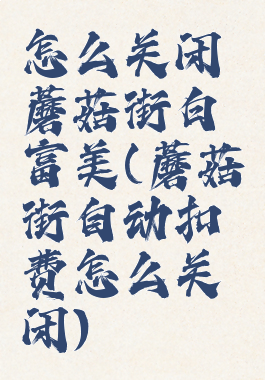 怎么关闭
蘑菇街白
富美(蘑菇
街自动扣
费怎么关
闭)